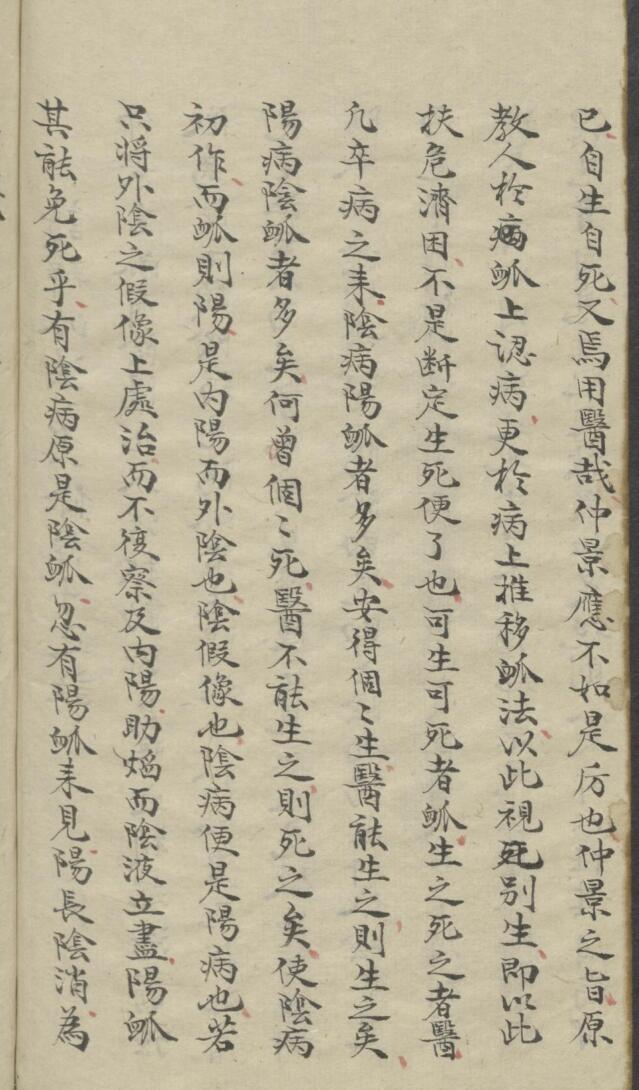 已自生自死又焉用醫哉仲景應不如是厉也仲景之旨原
教人於病脈上認病更於病上推移脈法以此視死別生即以此
扶危濟困不是断定生死便了也可生可死者脈生之死之者醫
凡卒病之来陰病陽脈者多矣安得個〻生醫能生之則生之矣
陽病陰脈者多矣何曾個〻死醫不能生之則死之矣使陰病
初作而脈則陽是内陽而外陰也陰假像也陰病便是陽病也若
只將外陰之假像上處治而不復察及内陽助焰而陰液立盡陽脈
其能免死乎有陰病原是陰脈忽有陽脈来見陽長陰消為